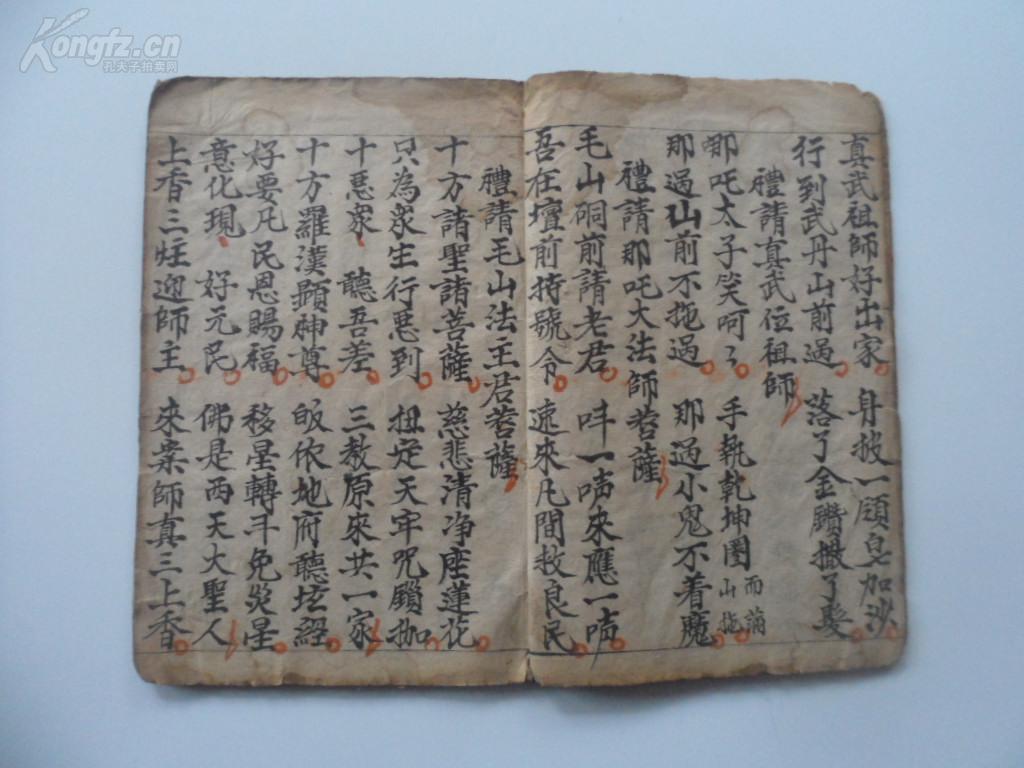 真武祖師好出家 身披一領皂加沙
行到武丹山前過 落了金鑽撒了髮
禮請真武位祖師
哪吒太子笑呵々 手執乾坤圈
那過山前不拖過 那過小鬼不着魔
禮請那吒大法師菩薩
毛山硐前請老君 吽一唥來應一唥
吾在壇前持號令 速來凡間救良民
禮請毛山法主君菩薩
十方諸聖諸菩薩 慈悲清净座蓮花
只為衆生行惡到 扭定天牢咒鎖枷
十惡衆 聽吾差 三教原來共一家
十方羅漢顯神尊 皈依地府聽坛經
好要凡民恩賜福 移星轉斗免災星
意化現 好元民 佛是西天大聖人
上香三炷迎師主 來案師真三上香
Kongfz.cn
孔夫子拍卖网